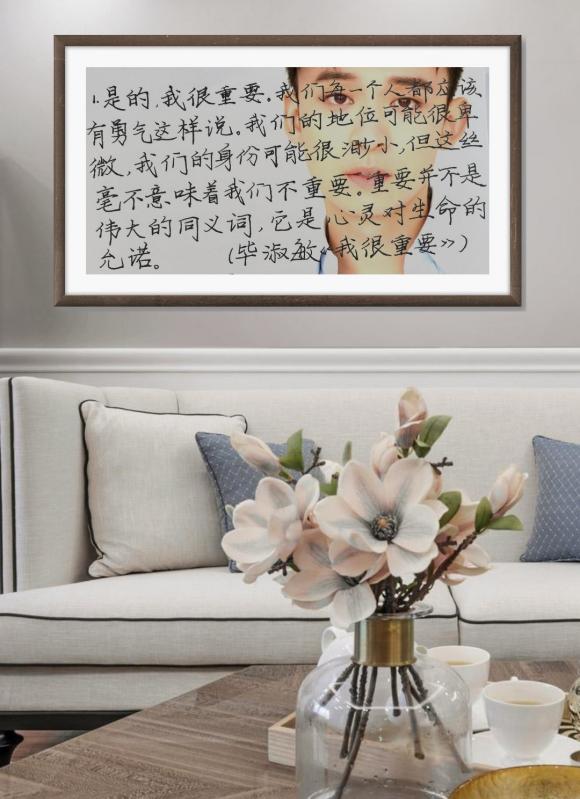 1.是的,我很重要。我们每一个人都应该
有勇气这样说。我们的地位可能很卑
微,我们的身份可能很渺小,但这丝
毫不意味着我们不重要。重要并不是
伟大的同义词,它是心灵对生命的
允诺。 (毕淑敏《我很重要》)